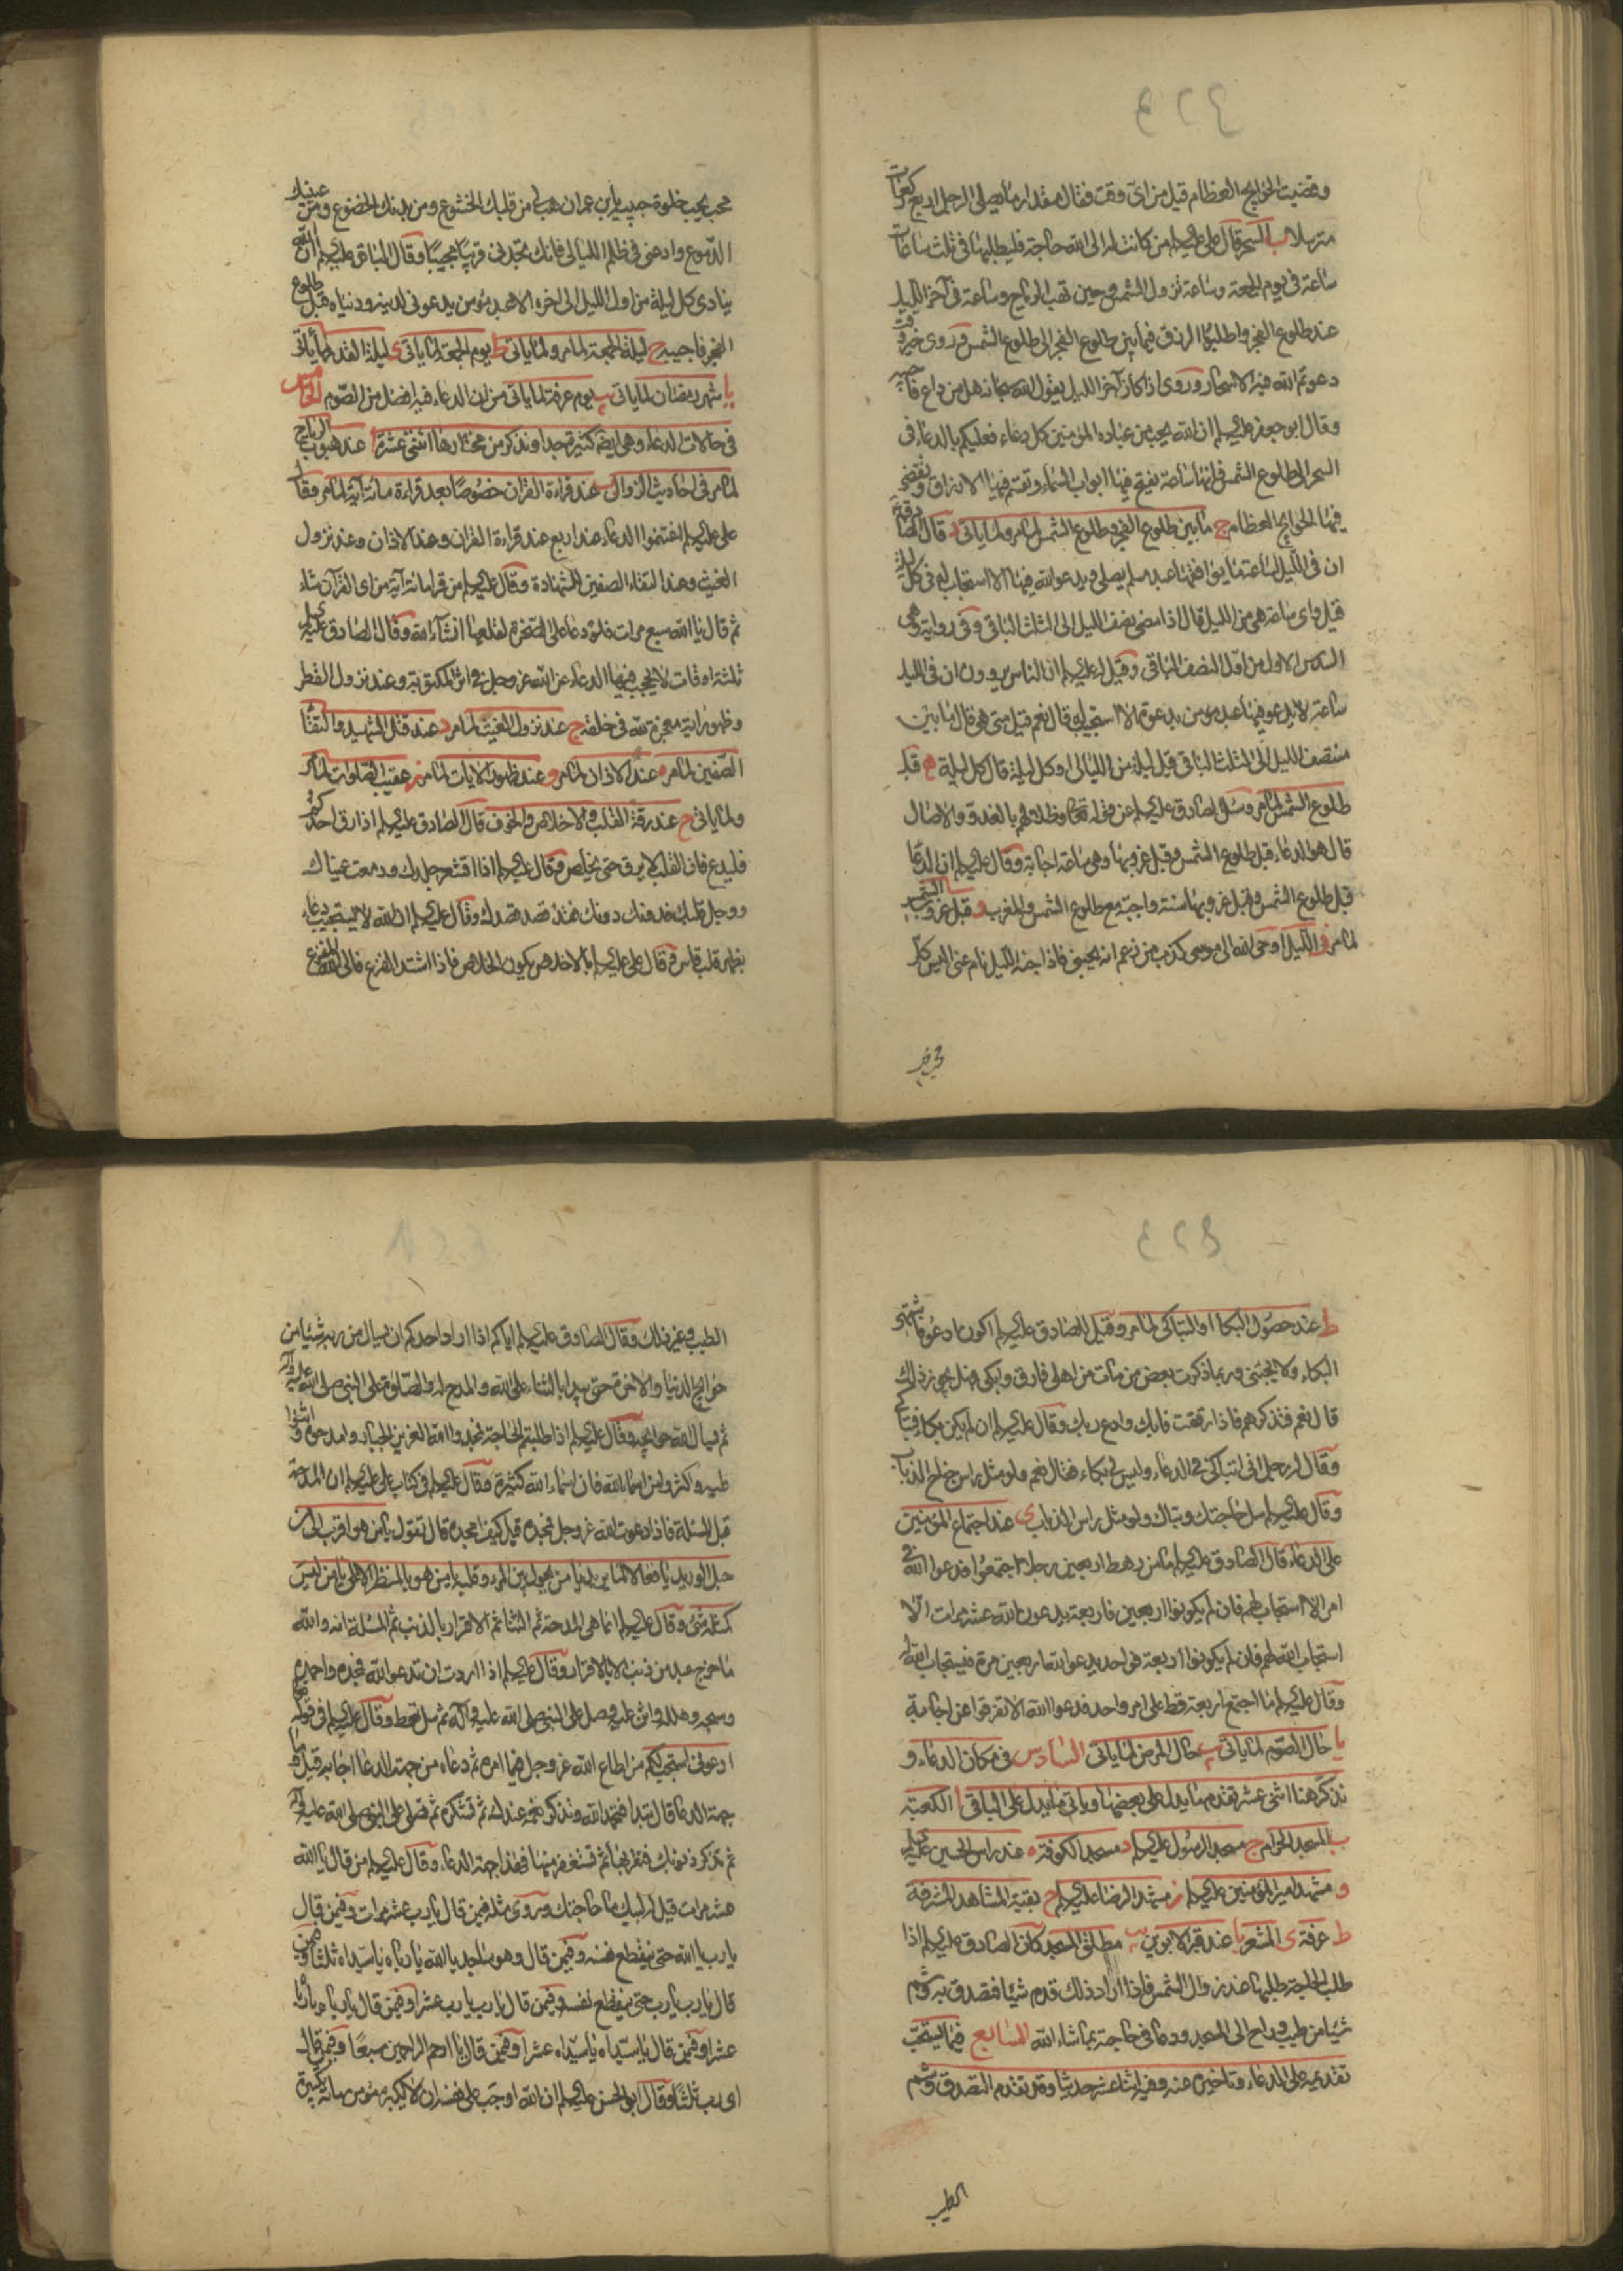 وقضيت الحوايج العظام قيل من اى وقت فقال مقدار ما يصلى الرجل اربع ركعات
مترسلا ب السحر قال على عليه السلم من كانت له الى الله حاجة فليطلبها فى ثلث ساعات
ساعة فى يوم الجمعة وساعة تزول الشمس وحين تهب الرياح وساعة فى آخر الليل
عند طلوع الفجر واطلبوا الرزق فيما بين طلوع الفجر الى طلوع الشمس وروى خير وقت
دعوتم الله فيه الاسحار وروى اذا كان آخر الليل يقول الله سبحانه هل من داع فاجيبه
وقال ابو جعفر عليه السلم ان الله يحب من عباده المؤمنين كل دعاء فعليكم بالدعاء فى
السحر الى طلوع الشمس فانها ساعة تفتح فيها ابواب السماء وتقسم فيها الارزاق وتقضى
فيها الحوايج العظام ج ما بين طلوع الفجر وطلوع الشمس لما مر ولما ياتى د قال الصادق
ان فى الليل لساعة ما يوافقها عبد مسلم يصلى ويدعو الله فيها الا استجاب له فى كل ليلة
قيل واى ساعة هى من الليل قال اذا مضى نصف الليل الى الثلث الباقى وفى رواية وهى
السدس الاول من اول النصف الباقى وقيل له عليه السلم ان الناس يروون ان فى الليل
ساعة لا يدعو فيها عبد مؤمن بدعوة الا استجيب له قال نعم قيل متى هى قال ما بين
منتصف الليل الى الثلث الباقى قيل ليلة من الليالى او كل ليلة قال كل ليلة ه قبل
طلوع الشمس لما مر وسئل الصادق عليه السلم عن قوله تعالى وظلالهم بالغدو والاصال
قال هو الدعاء قبل طلوع الشمس وقبل غروبها وهى ساعة اجابة وقال عليه السلم ان الدعا
قبل طلوع الشمس وقبل غروبها سنة واجبة مع طلوع الشمس والمغرب و قبل غروب الشمس
لما مر ز الليل اوحى الله الى موسى كذب من زعم انه يحبنى فاذا جنه الليل نام عنى اليس كل
محب يحب خلوة حبيبه يا ابن عمران هب لى من قلبك الخشوع ومن بدنك الخضوع ومن عينيك
الدموع وادعنى فى ظلم الليالى فانك تجدنى قريبا مجيبا وقال الباقر عليه السلم ان الله
ينادى كل ليلة من اول الليل الى اخره الا عبد مؤمن يدعونى لدينه ودنياه قبل طلوع
الفجر فاجيبه ح ليلة الجمعة لما مر ولما ياتى ط يوم الجمعة لما ياتى ى ليلة القدر لما ياتى
يا شهر رمضان لما ياتى يب يوم عرفة لما ياتى من ان الدعاء فيه افضل من الصوم الخامس
فى حالات الدعاء وهى ايضا كثيرة جدا ونذكر من مختارها اثنى عشرة ا عند هبوب الرياح
لما مر فى احاديث الزوال ب عند قراءة القران خصوصا بعد قراءة مائة آية لما مر وقال
على عليه السلم اغتنموا الدعاء عند اربع عند قراءة القران وعند الاذان وعند نزول
الغيث وعند التقاء الصفين للشهادة وقال عليه السلم من قرا مائة آية من اى القرآن شاء
ثم قال يا الله سبع مرات فلو دعا على الصخرة لقلعها انشاء الله وقال الصادق عليه السلم
ثلثة اوقات لا يحجب فيها الدعاء عن الله عز وجل فى اثر المكتوبة وعند نزول القطر
وظهور اية معجزة لله فى خلقه ج عند نزول الغيث لما مر د عند قتل الشهيد والتقا
الصفين لما مر ه عند الاذان لما مر و عند ظهور الايات لما مر ز عقيب الصلوات لما مر
ولما ياتى ح عند رقة القلب والاخلاص والخوف قال الصادق عليه السلم اذا رق احدكم
فليدع فان القلب لا يرق حتى يخلص وقال عليه السلم اذا اقشعر جلدك ودمعت عيناك
ووجل قلبك فدونك دونك فقد قصد قصدك وقال عليه السلم ان الله لا يستجيب دعاء
بظهر قلب قاس وقال على عليه السلم بالاخلاص يكون الخلاص فاذا اشتد الفزع فالى الله المفزع
ط عند حصول البكا او التباكى لما مر وقيل للصادق عليه السلم اكون ادعو فاشتهى
البكاء ولا يجيئنى وربما ذكرت بعض من مات من اهلى فارق وابكى فهل يجوز ذلك
قال نعم فتذكرهم فاذا رققت فابك وادع ربك وقال عليه السلم ان لم يكن بكاء فتباك
وقال له رجل انى اتباكى فى الدعاء وليس لى بكاء فقال نعم ولو مثل راس جناح الذباب
وقال عليه السلم سل حاجتك وتباك ولو مثل راس الذباب ى عند اجتماع المؤمنين
على الدعاء قال الصادق عليه السلم ما من رهط اربعين رجلا اجتمعوا فدعوا الله فى
امر الا استجاب لهم فان لم يكونوا اربعين فاربعة يدعون الله عشر مرات الا
استجاب الله لهم فان لم يكونوا اربعة فواحد يدعو الله اربعين مرة فيستجاب الله له
وقال عليه السلم ما اجتمع اربعة قط على امر واحد فدعوا الله الا تفرقوا عن اجابة
يا حال الصوم لما ياتى يب حال المرض لما ياتى السادس فى مكان الدعاء و
نذكر هنا اثنى عشر تقدم ما يدل على بعضها وياتى ما يدل على الباقى ا الكعبة
ب المسجد الحرام ج مسجد الرسول عليه السلم د مسجد الكوفة ه عند راس الحسين عليه السلم
و مشهد امير المؤمنين عليه السلم ز مشهد الرضا عليه السلم ح بقية المشاهد المشرفة
ط عرفة ى المشعر يا عند قبر الابوين يب مطلق المسجد كان الصادق عليه السلم اذا
طلب الحاجة طلبها عند زوال الشمس فاذا اراد ذلك قدم شيئا فتصدق به وشم
شيئا من طيب وراح الى المسجد ودعا فى حاجته بما شاء الله السابع فيما يستحب
تقديمه على الدعاء وتاخيره عنه وفيه اثنا عشر حديثا وقد تقدم التصدق وشم
الطيب
الطيب وغير ذلك وقال الصادق عليه السلم اياكم اذا اراد احدكم ان يسال من ربه شيئا من
حوايج الدنيا والاخرة حتى يبدا بالثناء على الله والمدح له والصلوة على النبى صلى الله عليه وآله
ثم يسال الله حوايجه وقال عليه السلم اذا طلبتم الحاجة فمجدوا الله العزيز الجبار وامدحوه واثنوا
عليه واكثروا من اسماء الله فان اسماء الله كثيرة وقال عليه السلم فى كتاب على عليه السلم ان المدحة
قبل المسئلة فاذا دعوت الله عز وجل فمجده قيل كيف امجده قال تقول يا من هو اقرب الى من
حبل الوريد يا فعالا لما يريد يا من يحول بين المرء وقلبه يا من هو بالمنظر الاعلى يا من ليس
كمثله شئ وقال عليه السلم انما هى المدحة ثم الثنا ثم الاقرار بالذنب ثم المسئلة انه والله
ما خرج عبد من ذنب الا بالاقرار وقال عليه السلم اذا اردت ان تدعو الله فمجده واحمده
وسبحه وهلله واثن عليه وصل على النبى صلى الله عليه وآله ثم سل تعط وقال عليه السلم فى قوله تعالى
ادعونى استجب لكم من اطاع الله عز وجل فيما امره ثم دعاه من جهة الدعا اجابه قيل وما
جهة الدعا قال تبدا فتحمد الله وتذكر نعمه عندك ثم تشكره ثم تصلى على النبى صلى الله عليه وآله
ثم تذكر ذنوبك فتقر بها ثم تستغفر منها فهذا جهة الدعاء وقال عليه السلم من قال يا الله
عشر مرات قيل له لبيك ما حاجتك وروى مثله فيمن قال يا رب عشر مرات وفيمن قال
يا رب يا الله حتى ينقطع نفسه وفيمن قال وهو ساجد يا الله يا رباه يا سيداه ثلثا وفيمن
قال يا رب يا رب حتى ينقطع نفسه وفيمن قال يا رب يا رب عشرا وفيمن قال يا رباه يا رباه
عشرا وفيمن قال يا سيداه يا سيداه عشرا وفيمن قال يا ارحم الراحمين سبعا وفيمن قال
اى رب ثلثا وقال ابو الحسن عليه السلم ان الله اوجب على نفسه ان لا يكبره مؤمن مائة تكبيرة